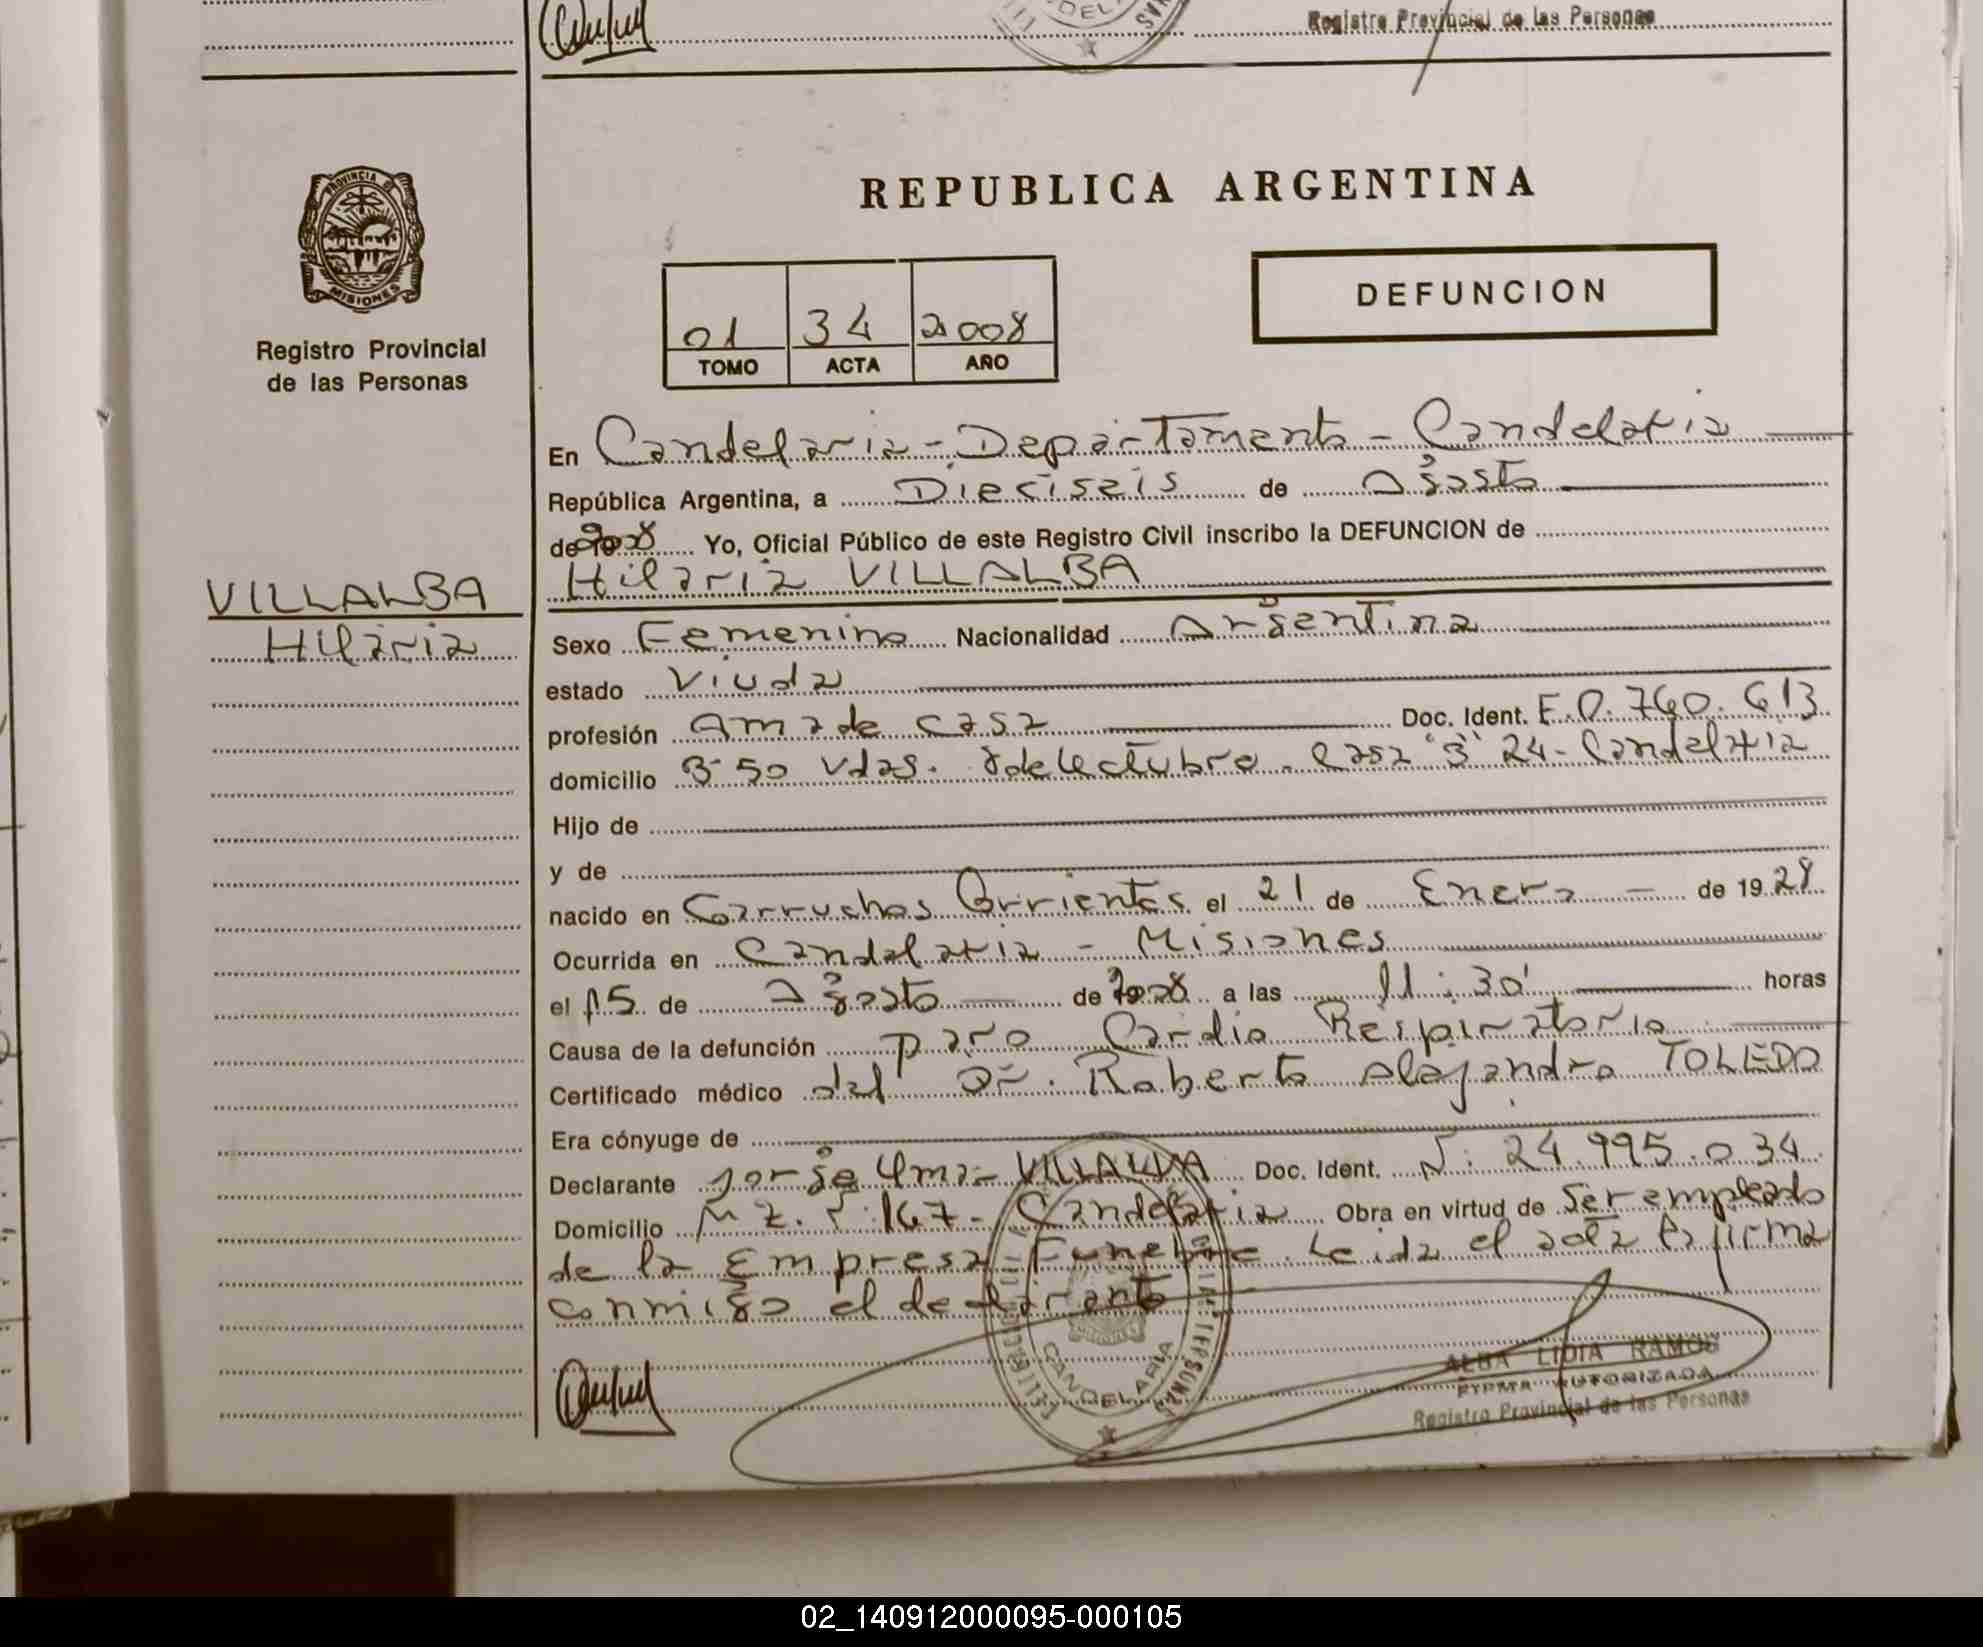 Registro Provincial de las Personas
PROVINCIA DE
MISIONES
Registro Provincial
de las Personas
VILLALBA
Hilaria
REPUBLICA ARGENTINA
01 34 2008
TOMO ACTA AÑO
DEFUNCION
En Candelaria - Departamento - Candelaria
República Argentina, a Dieciseis de Agosto
de 2008 Yo, Oficial Público de este Registro Civil inscribo la DEFUNCION de
Hilaria VILLALBA
Sexo Femenino Nacionalidad Argentina
estado Viuda
profesión Ama de casa Doc. Ident. F. 0.760.613
domicilio B- 50 Vdas. 8 de Octubre. Casa "3" 24- Candelaria
Hijo de
y de
nacido en Garruchos Corrientes el 21 de Enero de 19 28
Ocurrida en Candelaria - Misiones
el 15 de Agosto de 2008 a las 11:30' horas
Causa de la defunción paro Cardio Respiratorio
Certificado médico del Dr. Roberto Alejandro TOLEDO
Era cónyuge de
Declarante Jorge Omar VILLALVA Doc. Ident. N: 24.995.034
Domicilio Mz. 167- Candelaria Obra en virtud de Ser empleado
de la Empresa Funebre. Leida el acta la firma
conmigo el declarante
CANDELARIA
ALBA LIDIA RAMOS
FIRMA AUTORIZADA
Registro Provincial de las Personas
02_140912000095-000105